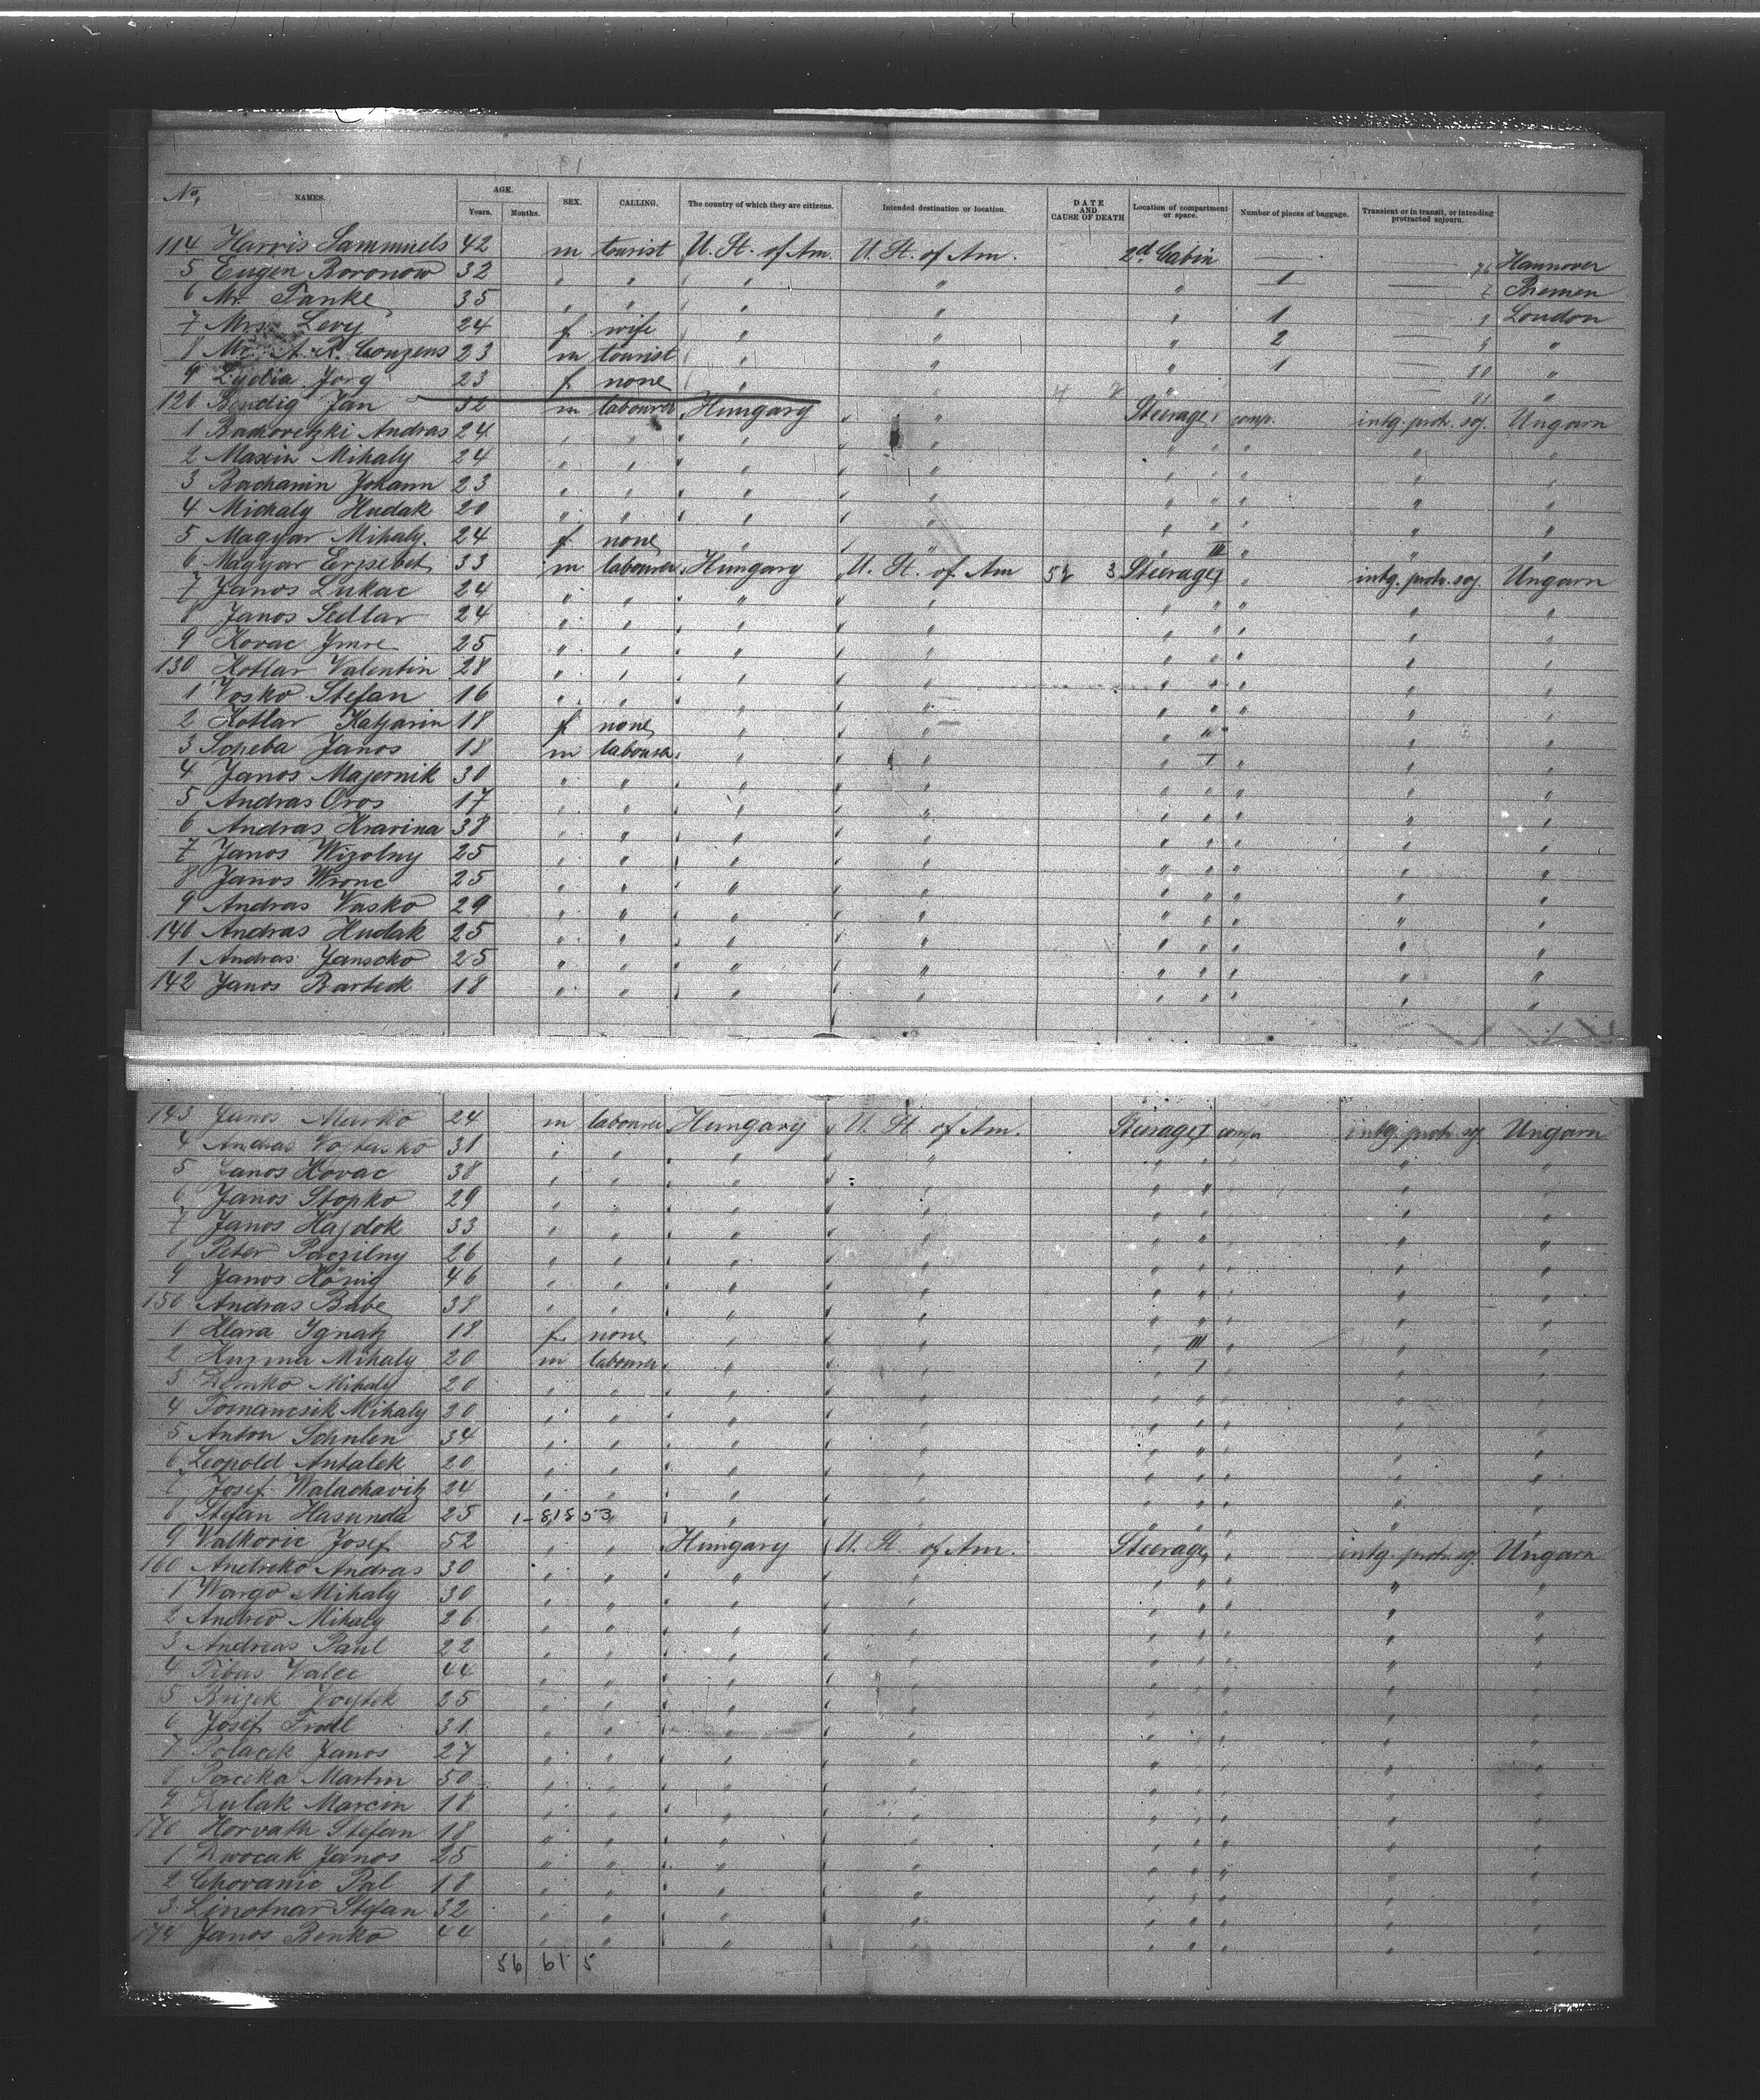 No. NAMES. AGE. Years. Months. SEX. CALLING. The country of which they are citizens. Intended destination or location. DATE AND CAUSE OF DEATH Location of compartment or space. Number of pieces of baggage. Transient or in transit, or intending protracted sojourn.
114 Harris Sammuels 42 m tourist U. St. of Am. U. St. of Am. 2d Cabin — — Hannover
5 Eugen Boronow 32 " " " " " 1 — Bremen
6 Mr. Tanke 35 " " " " " 1 — London
7 Mrs. Levy 24 f wife " " " 2 — "
8 Mr. A. R. Couzens 23 m tourist " " " 1 — "
9 Lydia Jorg 23 f none " " " — "
120 Bendig Jan 32 m labourer Hungary " " Steerage I comp. intg. protr. soj. Ungarn
1 Bachoretzki Andras 24 " " " " " " " " "
2 Maxin Mihaly 24 " " " " " " " " "
3 Bachanin Johann 23 " " " " " " " " "
4 Michaly Hudak 20 " " " " " " " " "
5 Magyar Mihaly 24 f none " " " III " " "
6 Magyar Erzsebet 33 m labourer Hungary U. St. of Am Steerage I " intg. protr. soj. Ungarn
7 Janos Lukac 24 " " " " " " " " "
8 Janos Sedlar 24 " " " " " " " " "
9 Kovac Imre 25 " " " " " " " " "
130 Kotlar Valentin 28 " " " " " " " " "
1 Vosko Stefan 16 " " " " " " " " "
2 Kotlar Katjarin 18 f none " " " " " "
3 Sopeba Janos 18 m labourer " " " I " " "
4 Janos Majernik 30 " " " " " " " " "
5 Andras Oros 17 " " " " " " " " "
6 Andras Kravina 38 " " " " " " " " "
7 Janos Wizolny 25 " " " " " " " " "
8 Janos Wronc 25 " " " " " " " " "
9 Andras Vasko 29 " " " " " " " " "
140 Andras Hudak 25 " " " " " " " " "
1 Andras Janscko 25 " " " " " " " " "
142 Janos Barteck 18 " " " " " " " " "
143 Janos Marko 24 m labourer Hungary U. St. of Am. Steerage I comp. intg. protr. soj. Ungarn
4 Andras 31 " " " " " " " " "
5 Janos Kovac 38 " " " " " " " " "
6 Janos Stopko 29 " " " " " " " " "
7 Janos Hajdok 33 " " " " " " " " "
8 Peter Paczilny 26 " " " " " " " " "
9 Janos König 46 " " " " " " " " "
150 Andras Babe 38 " " " " " " " " "
1 Klara Ignatz 18 f none " " " III " " "
2 Kuzma Mihaly 20 m labourer " " " I " " "
3 Demko Mihaly 20 " " " " " " " " "
4 Tomamcsik Mihaly 30 " " " " " " " " "
5 Anton Schnlen 34 " " " " " " " " "
6 Leopold Antalek 20 " " " " " " " " "
7 Josef Walachavitz 24 " " " " " " " " "
8 Stefan Hasunda 25 1-81853 " " " " " " "
9 Valkovic Josef 52 " " Hungary U. St. of Am. Steerage " intg. protr. soj. Ungarn
160 Andreko Andras 30 " " " " " " " " "
1 Wargo Mihaly 30 " " " " " " " " "
2 Andreo Mihaly 26 " " " " " " " " "
3 Andreas Paul 22 " " " " " " " " "
4 Tibus Valec 44 " " " " " " " " "
5 Brizek Voytek 25 " " " " " " " " "
6 Josef Trall 31 " " " " " " " " "
7 Polacek Janos 27 " " " " " " " " "
8 Porceka Martin 50 " " " " " " " " "
9 Dulak Marcin 18 " " " " " " " " "
170 Horvath Stefan 18 " " " " " " " " "
1 Dwocak Janos 25 " " " " " " " " "
2 Chovanic Pal 18 " " " " " " " " "
3 Linotnar Stefan 32 " " " " " " " " "
174 Janos Benko 44 " " " " " " " " "
56 61 5